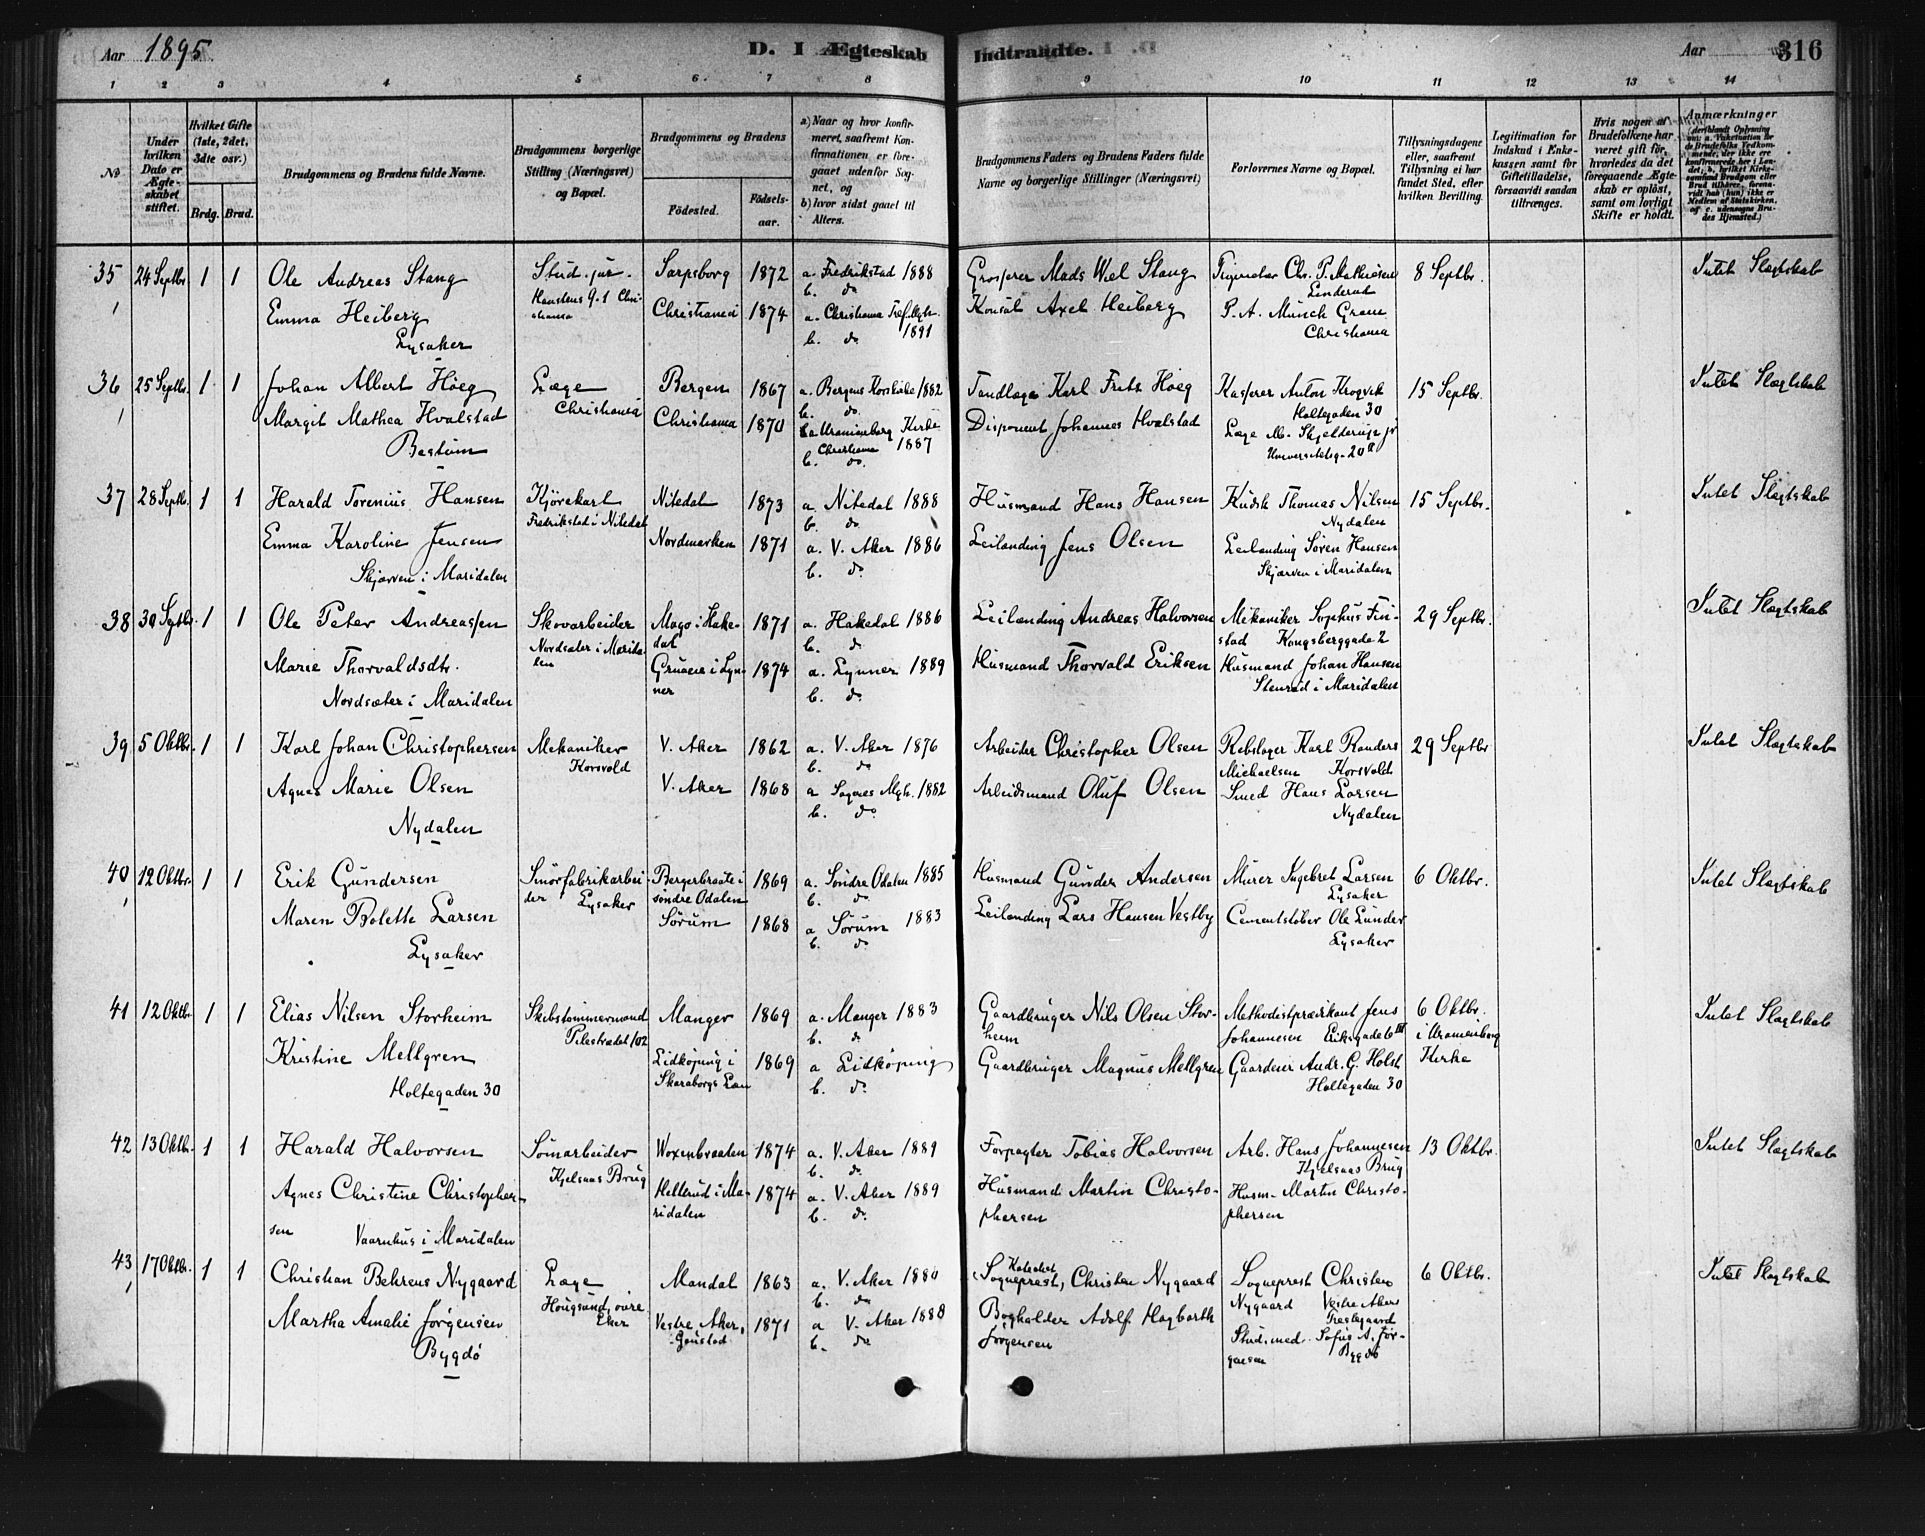 Aar 1895.
D. I Ægteskab Indtraadte.
Aar
316
1 2 3 4 5 6. 7 8 9 10 11 12 13 14
No
Under hvilken Dato er Ægteskabet stiftet.
Hvilket Gifte (1ste, 2det, 3die osv.)
Brdg. Brud.
Brudgommens og Brudens fulde Navne.
Brudgommens borgerlige Stilling (Næringsvei) og Bopæl.
Brudgommens og Brudens
Födested.
Födselsaar.
a) Naar og hvor konfirmeret, saafremt Konfirmationen er foregaaet udenfor Sognet, og
b) hvor sidst gaaet til Alters.
Brudgommens Faders og Brudens Faders fulde Navne og borgerlige Stillinger (Næringsvei)
Forlovernes Navne og Bopæl.
Tillysningsdagene eller, saafremt Tillysning ei har fundet Sted, efter hvilken Bevilling.
Legitimation for Indskud i Enkekassen samt for Giftetilladelse, forsaavidt saadan tiltrænges.
Hvis nogen af Brudefolkene har været gift för, hvorledes da det foregaaende Ægteskab er oplöst, samt om lovligt Skifte er holdt.
Anmærkninger
35 24 Septbr. 1 1 Ole Andreas Stang Stud. jur. Sarpsborg 1872 a. Fredrikstad 1888 b. do Grosserer Mads Wiel Stang Chr. P. Mathiesen Linderud 8 Septbr. Intet Slægtskab
Emma Heiberg Lysaker Christiania 1874 a. Christiania 1891 b. do Konsul Axel Heiberg P. A. Munch Gram Christiania
36 25 Septbr. 1 1 Johan Albert Höeg Læge Christiania Bergen 1867 a. Bergens Korskirke 1882 b. do Tandlæge Karl Frits Höeg Kasserer Anton Krogvik Holtegaden 30 15 Septbr. Intet Slægtskab
Margit Mathea Hvalstad Bestum Christiania 1870 a Uranienborg Kirke Christiania 1887 b. do. Disponent Johannes Hvalstad Læge M. Skjelderup jr Universitetsg. 20
37 28 Septbr. 1 1 Harald Torenius Hansen Kjörekarl Fredrikstad i Nitedal Nitedal 1873 a. Nitedal 1888 b. do Husmand Hans Hansen Kudsk Thomas Nilsen Nydalen 15 Septbr. Intet Slægtskab
Emma Karoline Jensen Skjærven i Maridalen Nordmarken 1871 a. V. Aker 1886 b. do Leilænding Jens Olsen Leilænding Sören Hansen Skjærven i Maridalen
38 30 Septbr. 1 1 Ole Peter Andreassen Skovarbeider Nordsæter i Maridalen Mago i Hakedal 1871 a. Hakedal 1886 b. do Leilænding Andreas Halvorsen Mekaniker Sophus Finstad Kongsberggade 2 29 Septbr. Intet Slægtskab
Marie Thorvaldsdtr. Nordsæter i Maridalen Gruaeie i Lynner 1874 a. Lynner 1889 b. do Husmand Thorvald Eriksen Husmand Johan Hansen Stensrud i Maridalen
39 5 Oktbr. 1 1 Karl Johan Christophersen Mekaniker Korsvold V. Aker 1862 a. V. Aker 1876 b. do Arbeider Christopher Olsen Rebslager Karl Randers Michaelsen Korsvold 29 Septbr Intet Slægtskab
Agnes Marie Olsen Nydalen V. Aker 1868 a Sagenes Mgh. 1882 b. do Arbeidsmand Oluf Olsen Smed Hans Larsen Nydalen
40 12 Oktbr. 1 1 Erik Gundersen Smörfabrikarbeider Lysaker Bergerbraate i söndre Odalen 1869 a. Söndre Odalen 1885 b. do Husmand Gunder Andersen Murer Ingebret Larsen Lysaker 6 Oktbr. Intet Slægtskab
Maren Bolette Larsen Lysaker Sörum 1868 a Sörum 1883 b. do Leilænding Lars Hansen Vestby Cementstöber Ole Lunder Lysaker
41 12 Oktbr. 1 1 Elias Nilsen Storheim Skibstömmermand Pilestrædet 102 Manger 1869 a. Manger 1883 b. do Gaardbruger Nils Olsen Storheim Methodistprædikant Jens Johannesen Eriksgade 6 III 6 Oktbr. i Uranienborg Kirke Intet Slægtskab
Kristine Mellgren Holtegaden 30 Lidköping i Skaraborgs Län 1869 a Lidköping b. do. Gaardbruger Magnus Mellgren Gaardeier Andr. G. Holst Holtegaden 30
42 13 Oktbr. 1 1 Harald Halvorsen Sömarbeider Kjelsaas Brug Woxenbraaten 1874 a. V. Aker 1889 b. do. Forpagter Tobias Halvorsen Arb. Hans Johannesen Kjelsaas Brug 13 Oktbr. Intet Slægtskab
Agnes Christine Christophersen Vaarnhus i Maridalen Hellerud i Maridalen 1874 a. V. Aker 1889 b. do. Husmand Martin Christophersen Husm. Martin Christophersen
43 17 Oktbr. 1 1 Christian Behrens Nygaard Læge Hougsund, övre Eker Mandal 1863 a. V. Aker 1880 b. do Sogneprest, Christen Nygaard Sogneprest Christen Nygaard Vestre Akers Prestegaard 6 Oktbr. Intet Slægtskab
Martha Amalie Jörgensen Bygdö Vestre Aker, Gaustad 1871 a V. Aker 1888 b. do Bogholder Adolf Hagbarth Jörgensen Stud. med. Sofus A. Jörgensen Bygdö